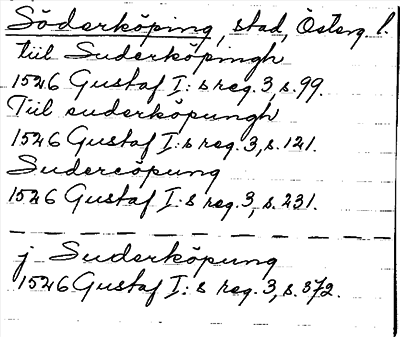 Söderköping, stad, Österg. l.
tiil Suderköpingh
1526 Gustaf I:s reg. 3, s. 99.
Tiil suderköpungh
1526 Gustaf I:s reg. 3, s. 121.
Sudercöpung
1526 Gustaf I:s reg. 3, s. 231.
j Suderköpung
1526 Gustaf I:s reg. 3, s. 372.